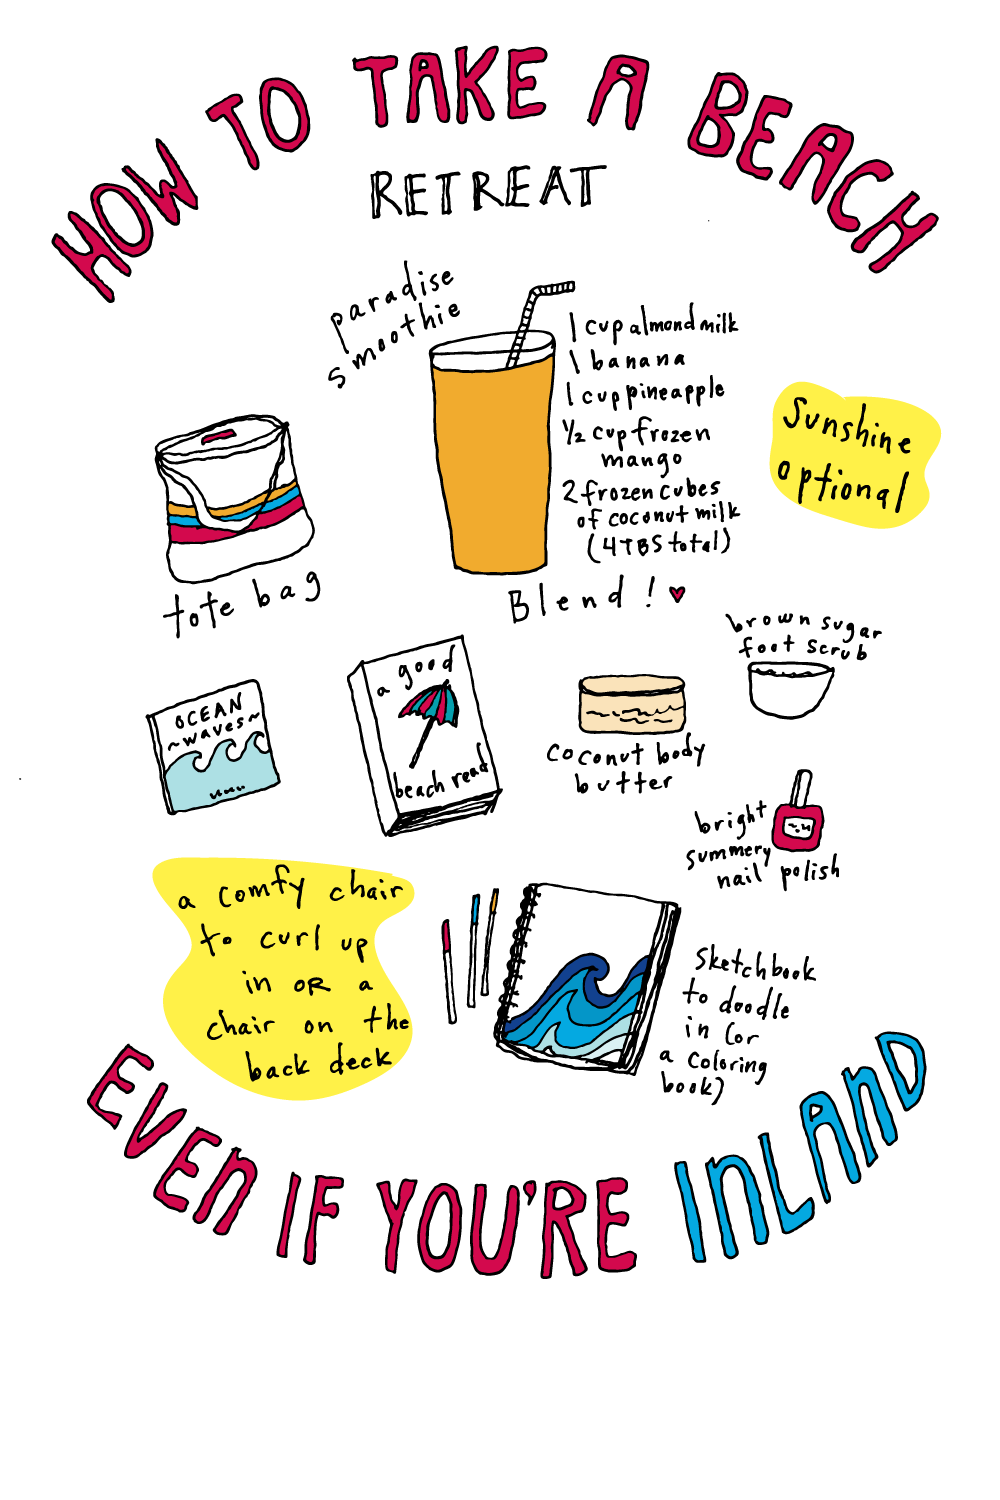 HOW TO TAKE A BEACH
RETREAT
paradise
smoothie
1 cup almond milk
1 banana
1 cup pineapple
1/2 cup frozen
mango
2 frozen cubes
of coconut milk
(4 TBS total)
Blend!
Sunshine
optional
tote bag
OCEAN
~waves~
a good
beach read
coconut body
butter
brown sugar
foot scrub
bright
summery
nail polish
a comfy chair
to curl up
in OR a
chair on the
back deck
sketchbook
to doodle
in (or
a coloring
book)
EVEN IF YOU'RE INLAND